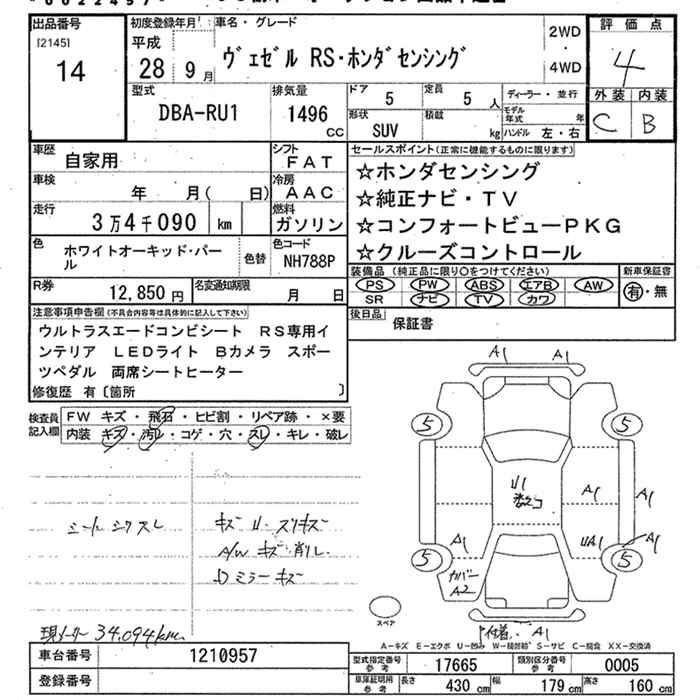 出品番号
[2145]
14
初度登録年月
平成
28 9月
車名・グレード
ヴェゼル RS・ホンダセンシング
2WD
・
4WD
評価点
4
外装 内装
C B
型式
DBA-RU1
排気量
1496
CC
ドア
5
定員
5 人
形状
SUV
積載
kg
ディーラー・並行
モデル年式 年
ハンドル 左・右
車歴
自家用
シフト
FAT
車検
年 月( 日)
冷房
AAC
走行
3万4千090 km
燃料
ガソリン
色
ホワイトオーキッド・パール
色替
色コード
NH788P
R券
12,850円
名変通知期限
月 日
セールスポイント(正常に機能するものに限ります)
☆ホンダセンシング
☆純正ナビ・TV
☆コンフォートビューPKG
☆クルーズコントロール
装備品 (純正品に限り○をつけてください)
PS PW ABS エアB AW
SR ナビ TV カワ
新車保証書
有・無
後日品
保証書
注意事項申告欄(不具合内容等は具体的に記入して下さい)
ウルトラスエードコンビシート RS専用イ
ンテリア LEDライト Bカメラ スポー
ツペダル 両席シートヒーター
修復歴 有〔箇所 〕
検査員記入欄
FW キズ・飛石・ヒビ割・リペア跡・×要
内装 キズ・汚レ・コゲ・穴・スレ・キレ・破レ
シートシワスレ
キズ U スリキズ
A/W キズ 削レ
D ミラーキズ
現メーター 34,094km
A1 A1
5 5
U1
A1
A1
A1
UA1
A1
5 5
カバー
A2
A1
スペア
A-キズ E-エクボ U-凹み W-補修跡 S-サビ C-腐食 XX-交換済
車台番号
1210957
登録番号
型式指定番号参考
17665
類別区分番号参考
0005
車庫証明用参考
長さ 430 cm 幅 179 cm 高さ 160 cm